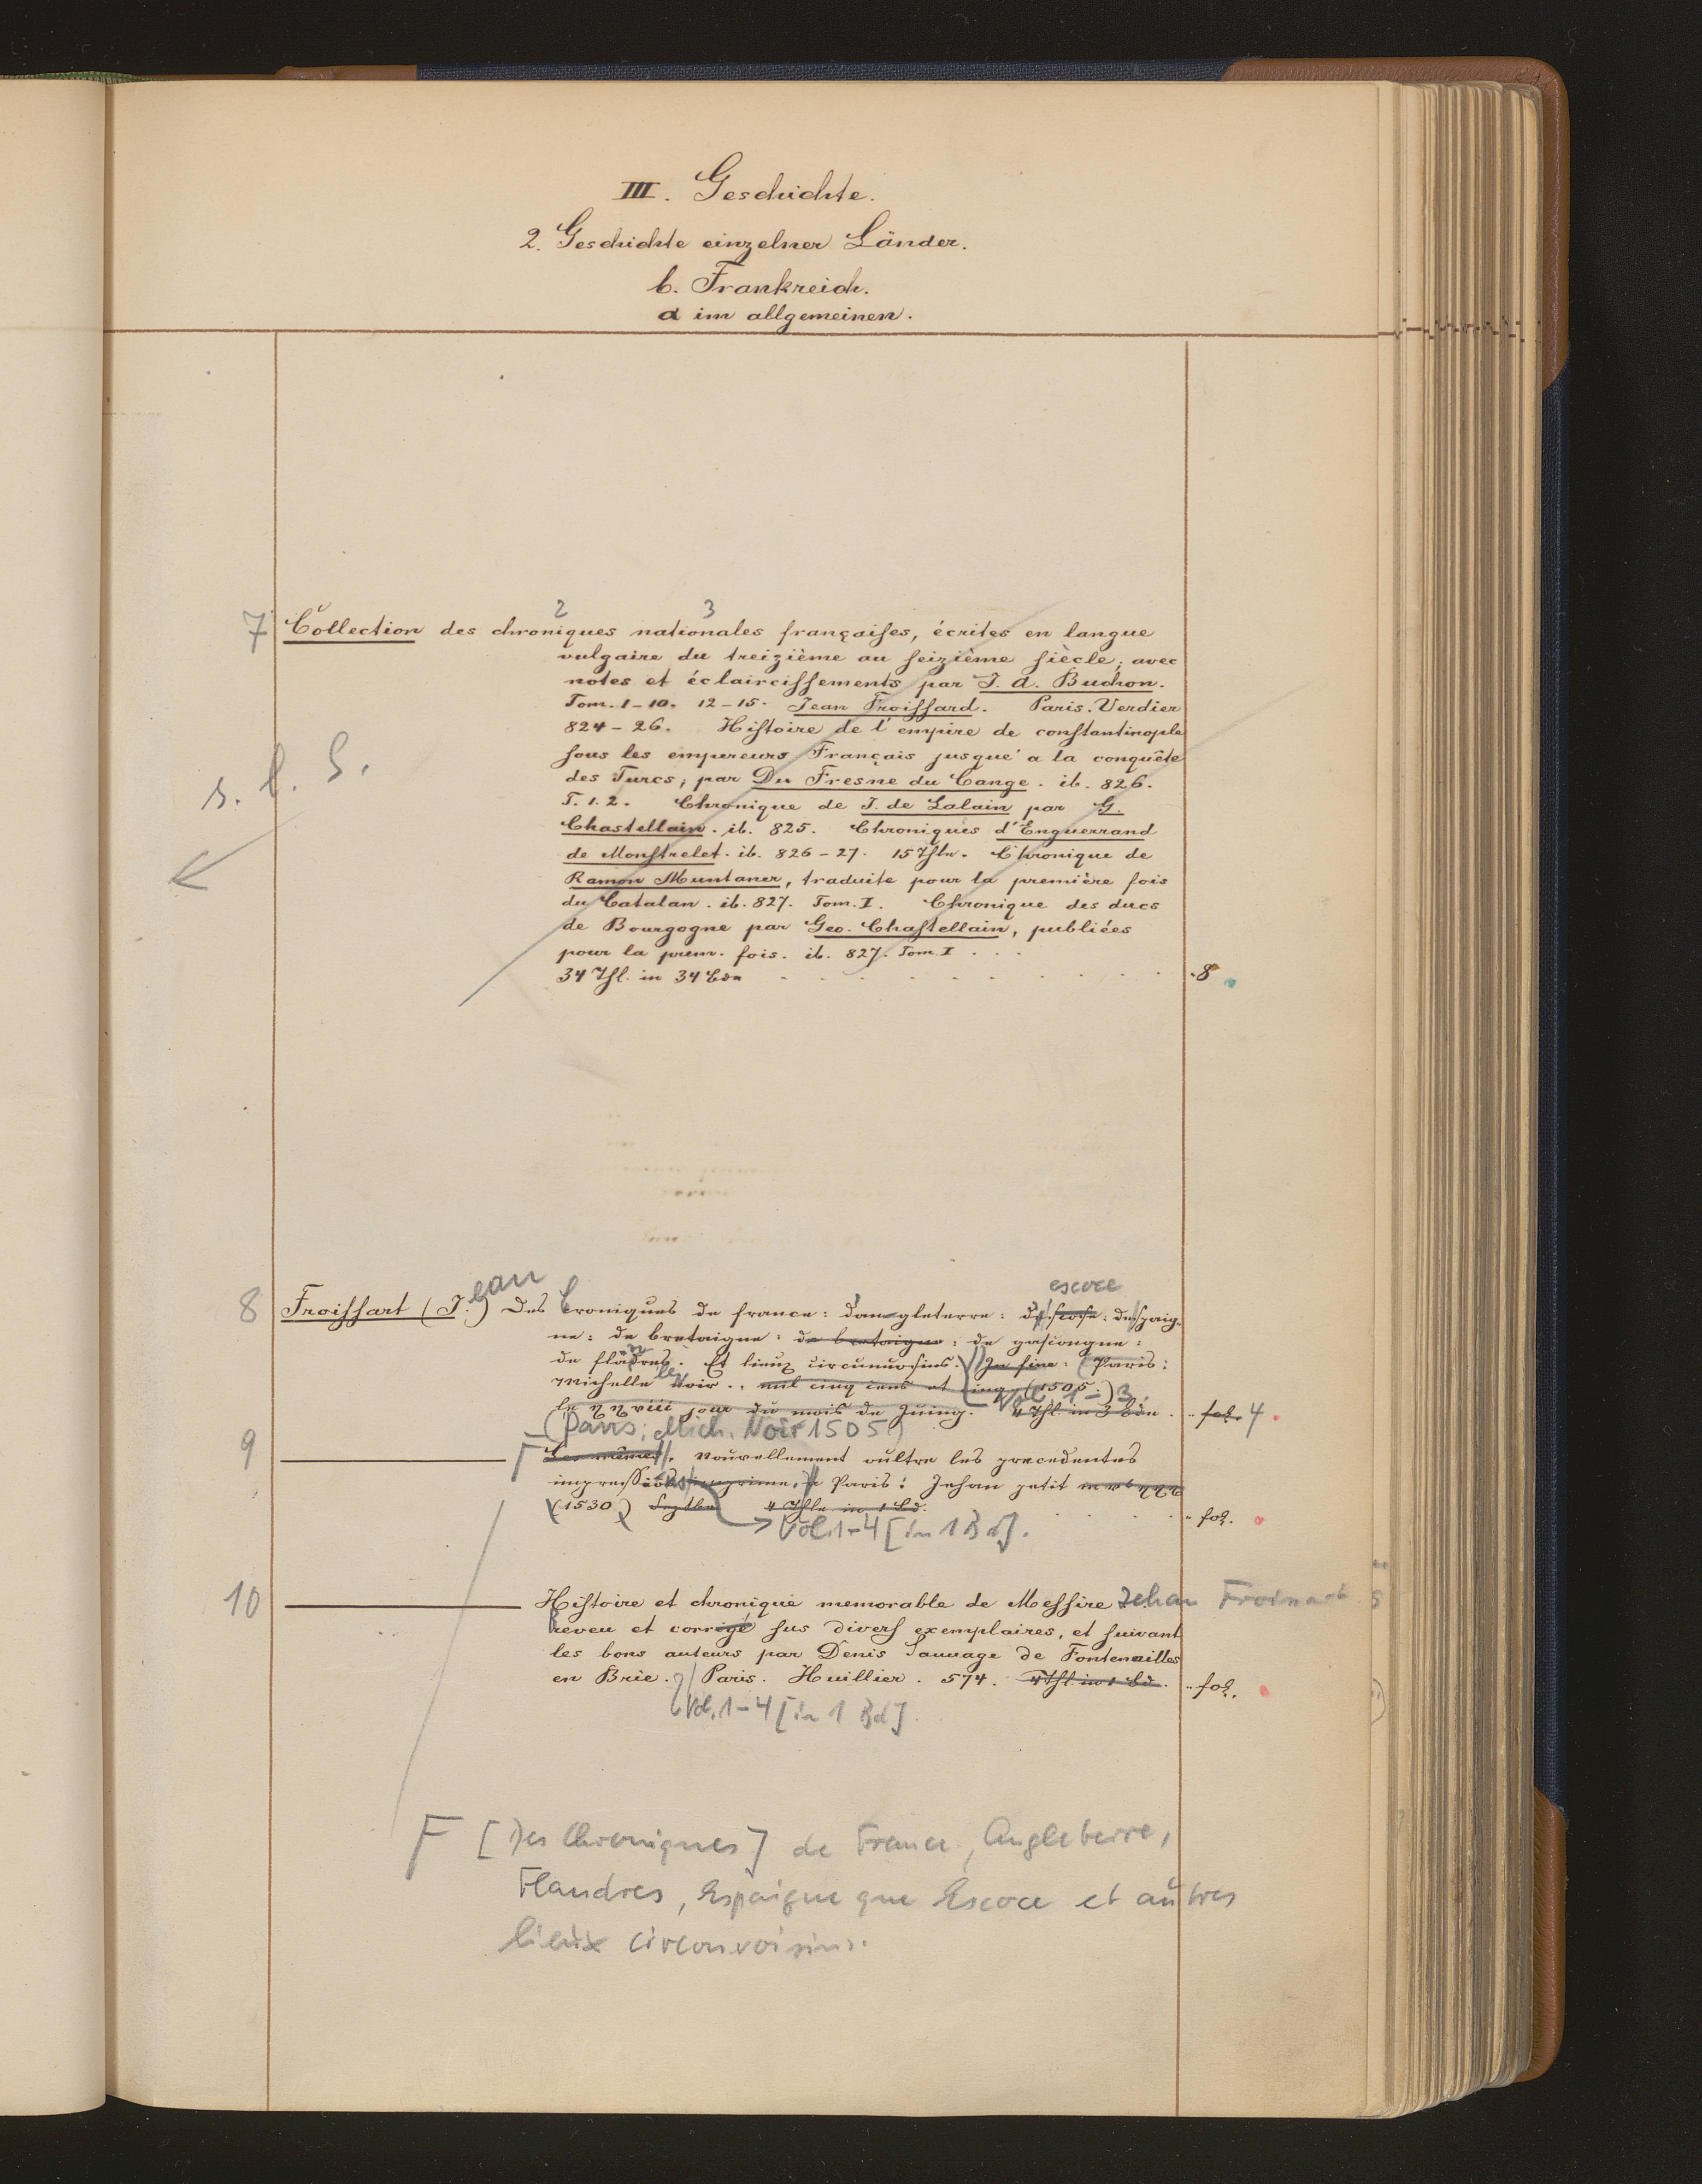 III. Geschichte.
2. Geschichte einzelner Länder.
b. Frankreich.
a im allgemeinen.
1 2 3
7 Collection des chroniques nationales françaises, écrites en langue
vulgaire du treizième au seizième siècle; avec
notes et éclaircissements par J. A. Buchon.
Tom. 1-10. 12-15. Jean Froissard. Paris. Verdier
824-26. Histoire de l'empire de constantinople
sous les empereurs Français jusqué a la conquête
des Turcs; par Du Fresne du Cange. ib. 826.
T. 1. 2. Chronique de J. de Lalain par G.
Chastellain. ib. 825. Chroniques d'Enguerrand
de Monstrelet. ib. 826-27. 15 Thle. Chronique de
Ramon Muntaner, traduite pour la première fois
du Catalan. ib. 827. Tom. I. Chronique des ducs
de Bourgogne par Geo. Chastellain, publiées
pour la prem. fois. ib. 827. Tom. I . . .
34 Thl. in 34 Bdn . . . 8
s. l. S.
escoce
8 Froissart (J.ean) Des Croniques de france: dangleterre: descose: despaig-
ne: de bretaigne: de bretaigne: de gascongne:
de flãdres. Et lieux circunuosins. In fine: (Paris:
Michelle le Noir., mil cinq cens et cinq (1505.)
Vol. 1-3.
le xxviii jour du mois de Juing. 4 Thl. in 3 Bdn. . fol. 4
(Paris; Mich. Noir 1505)
9 Les mêmes, nouvellement oultre les precedentes
impressiõs imprime, Paris: Jehan petit
(1530) Septbr 4 Thle in 1 Bd. . . . fol.
Vol. 1-4 [in 1 Bd].
10 Histoire et chronique memorable de Messire Jehan Froissart
Reveu et corrigé sus divers exemplaires, et suivant
les bons auteurs par Denis Sauvage de Fontenailles
en Brie. Paris. Huillier. 574. 4 Thl. in 1 Bd. . fol.
Vol. 1-4 [in 1 Bd].
[Des Chroniques] de France, Angleterre,
Flandres, Espaigne que Escoce et autres
lieux circonvoisins.